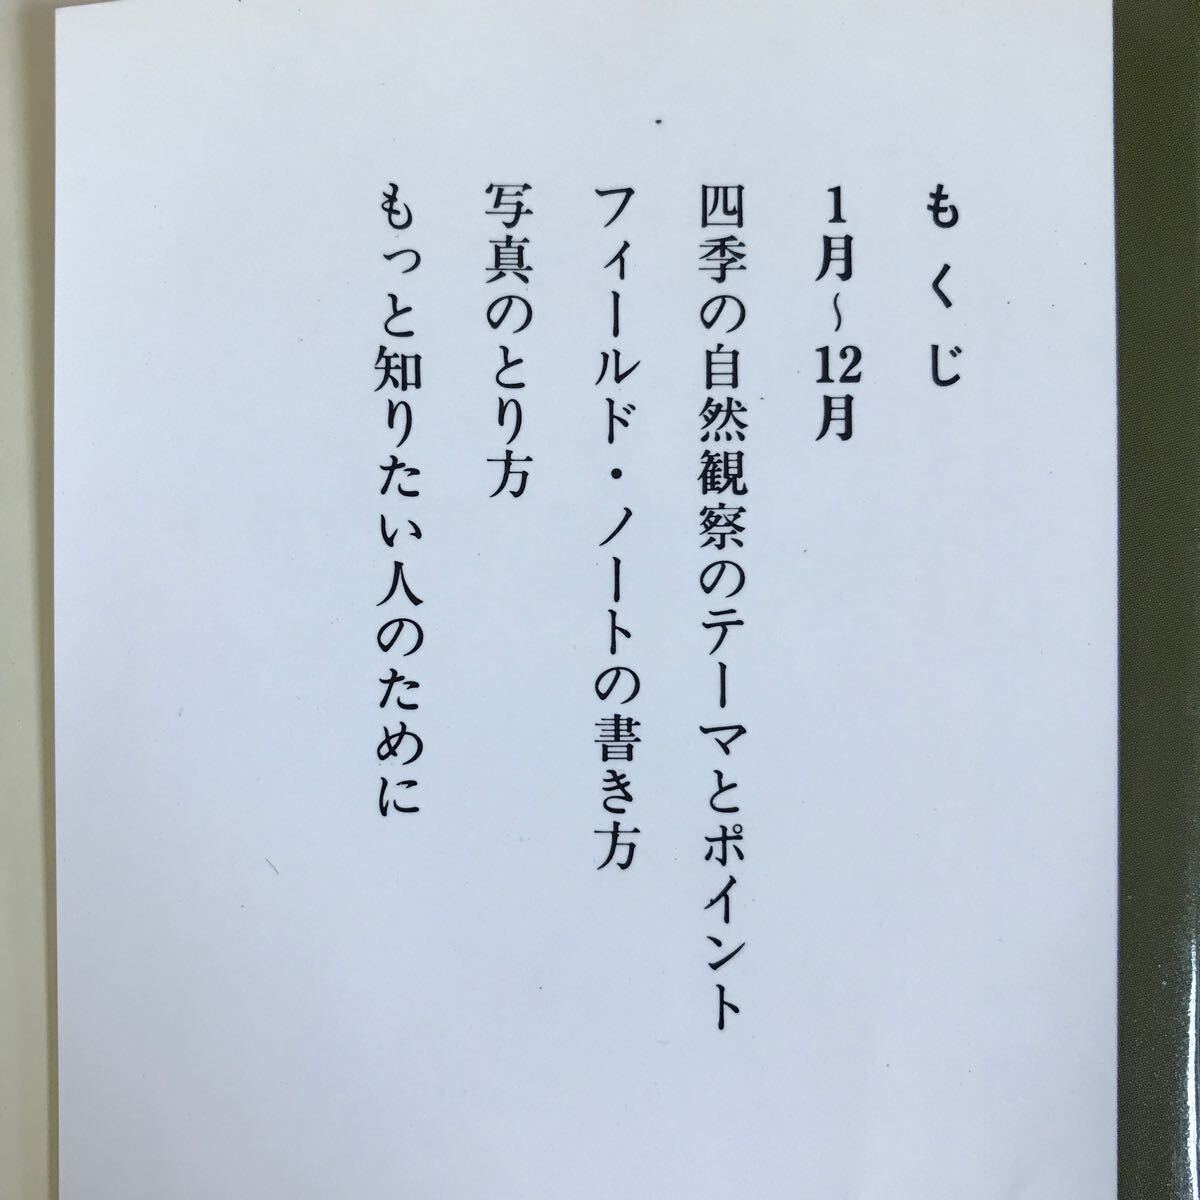 もくじ
1月〜12月
四季の自然観察のテーマとポイント
フィールド・ノートの書き方
写真のとり方
もっと知りたい人のために